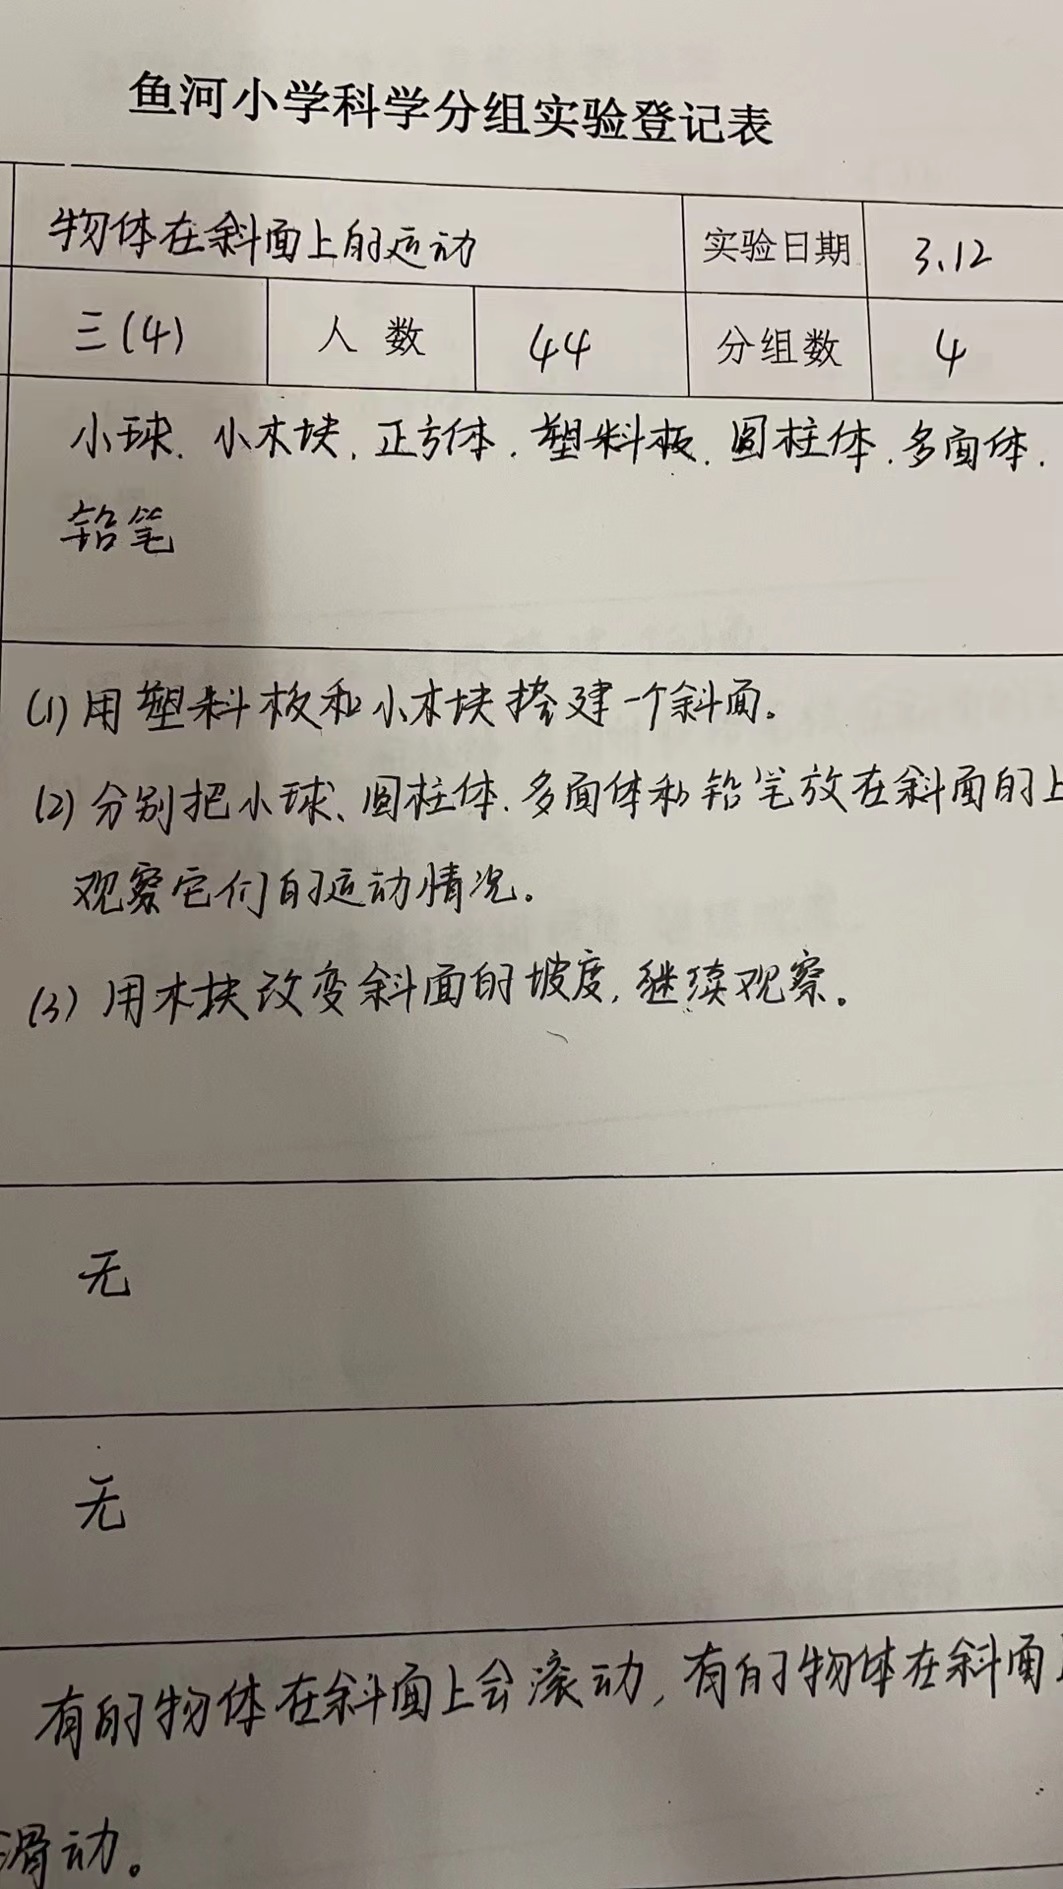 鱼河小学科学分组实验登记表
物体在斜面上的运动 实验日期 3.12
三(4) 人数 44 分组数 4
小球、小木块、正方体、塑料板、圆柱体、多面体、
铅笔
(1) 用塑料板和小木块搭建一个斜面。
(2) 分别把小球、圆柱体、多面体和铅笔放在斜面的上
观察它们的运动情况。
(3) 用木块改变斜面的坡度，继续观察。
无
无
有的物体在斜面上会滚动，有的物体在斜面
滑动。